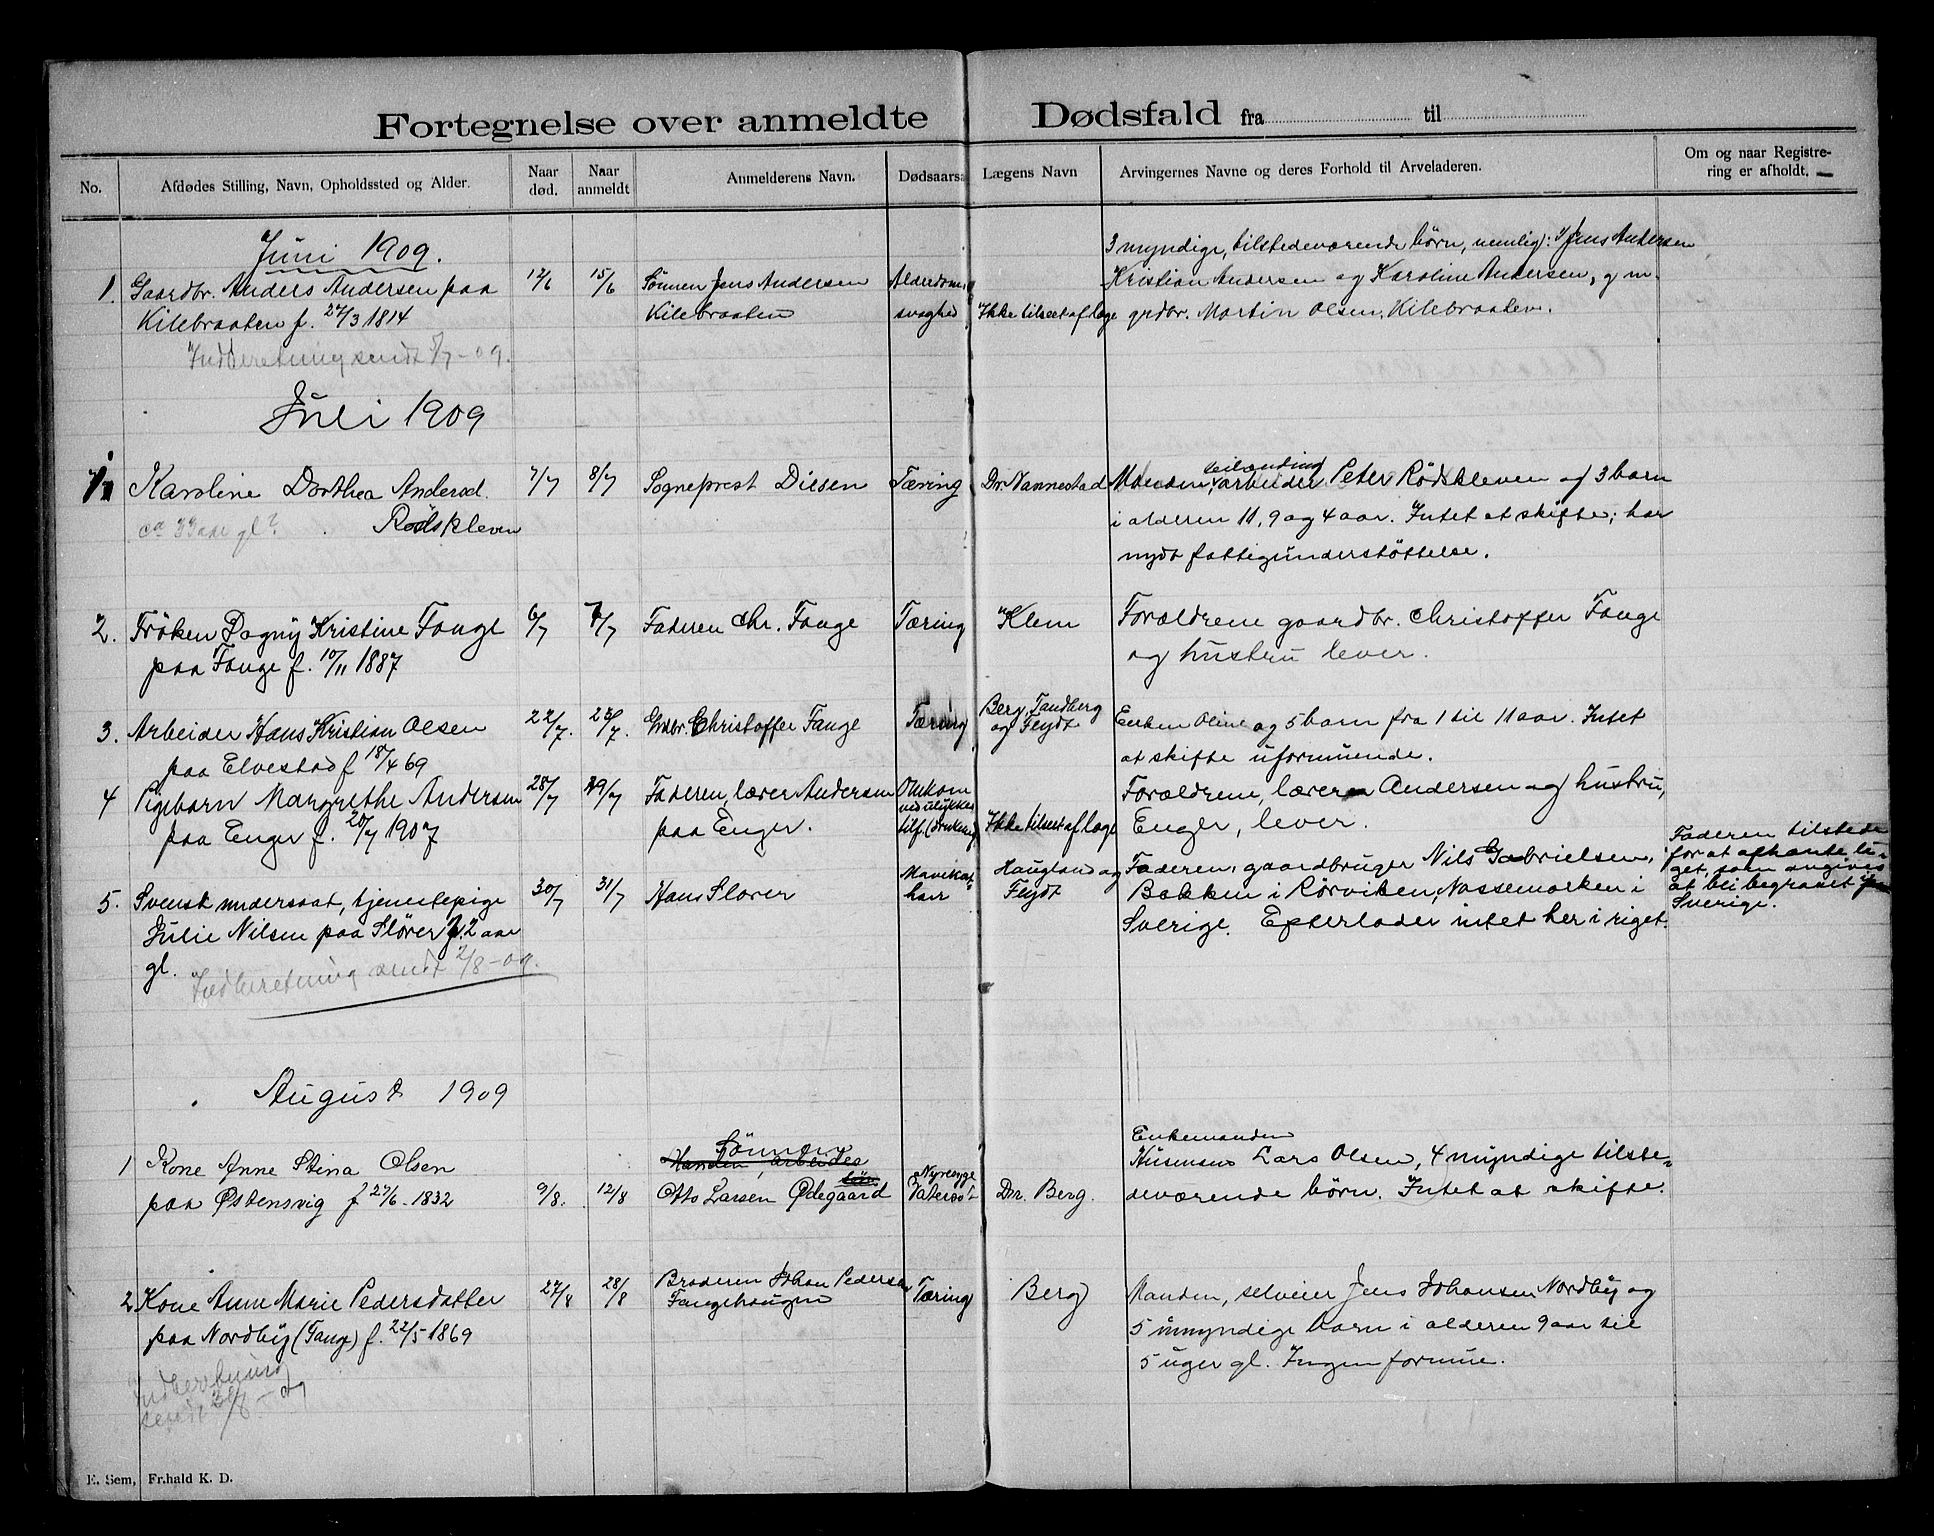 Fortegnelse over anmeldte Dødsfald fra til
No.
Afdødes Stilling, Navn, Opholdssted og Alder.
Naar død.
Naar anmeldt
Anmelderens Navn.
Dødsaarsa
Lægens Navn
Arvingernes Navne og deres Forhold til Arveladeren.
Om og naar Registre-
ring er afholdt.
Juni 1909.
1. Gaardbr. Anders Andersen paa
Kilebraaten f. 27/3 1814
12/6
15/6
Sønnen Jens Andersen
Kilebraaten
Alderdoms
svaghed
Ikke tilseet af læge
3 myndige, tilstedeværende børn, nemlig: Jens Andersen
Kristian Andersen og Karoline Andersen, g m.
grdbr. Martin Olsen, Kilebraaten.
Indberetning sendt 5/7-09.
Juli 1909
1
Karoline Dorthea Andersd.
Rødskleven
ca 33 aar gl?
7/7
8/7
Sogneprest Diesen
Tæring
Dr. Nannestad
Manden, arbeider Peter Rødskleven og 3 barn
i alderen 11, 9 og 4 aar. Intet at skifte; har
nydt fattigunderstøttelse.
2. Frøken Dagny Kristine Fange
paa Fange f. 10/11 1887
6/7
7/7
Faderen Chr. Fange
Tæring
Klem
Forældrene gaardbr. Christoffer Fange
og hustru lever.
3. Arbeider Hans Kristian Olsen
paa Elvestad f 18/4 69
22/7.
23/7.
Grdbr. Christoffer Fange
Tæring
Berg, Tandberg
og Fleydt
Enken Oline og 5 barn fra 1 til 11 aar. Intet
at skifte uformuende.
4 Pigebarn Margrethe Andersen
paa Enger f. 20/7 1907
28/7
29/7
Faderen, lærer Andersen
paa Enger.
Omkom
ved ulykkes
tilf. (drukning)
Ikke tilseet af læge
Forældrene, lærer Andersen og hustru,
Enger, lever.
5. Svensk undersaat, tjenestepige
Julie Nilsen paa Slører 22 aar
gl.
30/7
31/7
Hans Slører
Mavekat-
harr
Haugland og
Fleydt
Faderen, gaardbruger Nils Gabrielsen,
Bakken i Rørviken, Nassemarken i
Sverige. Efterlader intet her i riget.
Faderen tilstede
for at afhente li-
get, som angives
at bli begravet i
Sverige.
Indberetning sendt 2/8-09.
August 1909
1 Kone Anne Stina Olsen
paa Østensvig f 27/6 1832
9/8.
12/8
Sønnen
Manden, arbeider
Otto Larsen Ødegaard
Nyresyge
Vatersot
Dr. Berg.
Enkemanden
Husmand Lars Olsen, 4 myndige tilste-
deværende børn. Intet at skifte.
2 Kone Anne Marie Pedersdatter
paa Nordby (Fange) f. 22/5 1869
27/8
28/8
Broderen Johan Pedersen
Fangehaugen
Tæring
Berg
Manden, selveier Jens Johansen Nordby og
5 umyndige barn i alderen 9 aar til
5 uger gl. Ingen formue.
Indberetning
sendt 31/8-09
E. Sem, Fr.hald K. D.